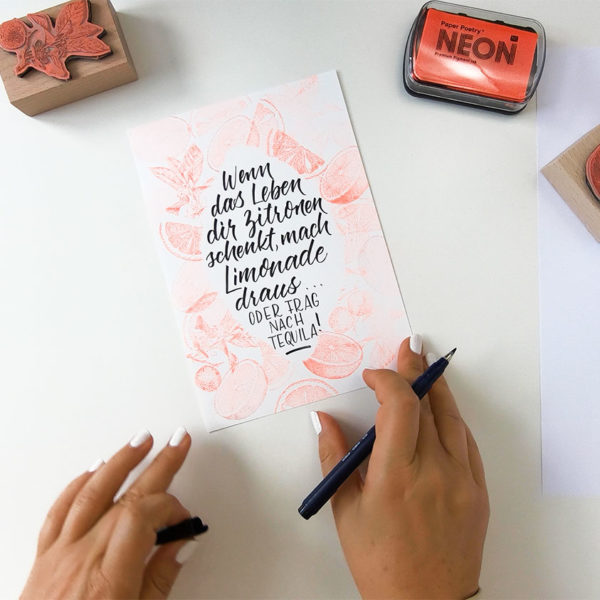 Paper Poetry
NEON
Premium Pigment Ink
Wenn
das Leben
dir Zitronen
schenkt, mach
Limonade
draus...
ODER FRAG
NACH
TEQUILA!